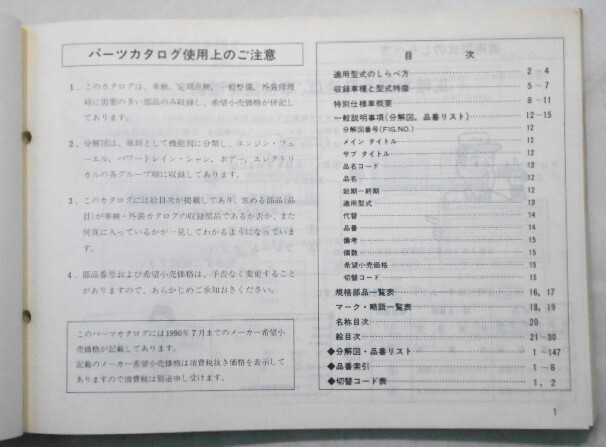 パーツカタログ使用上のご注意
1. このカタログは、車検、定期点検、一般整備、外装修理
時に需要の多い部品のみ収録し、希望小売価格が併記し
てあります。
2. 分解図は、原則として機能別に分類し、エンジン・フュ
ーエル、パワートレイン・シャシ、ボデー、エレクトリ
カルの各グループ順に収録してあります。
3. このカタログには絵目次が掲載してあり、求める部品(品
目)が車検・外装カタログの収録部品であるか否か、また
何頁に入っているかが一見してわかるようになっていま
す。
4. 部品番号および希望小売価格は、予告なく変更すること
がありますので、あらかじめご承知おきください。
このパーツカタログには1990年7月までのメーカー希望小
売価格が記載してあります。
記載のメーカー希望小売価格は消費税抜き価格を表示して
ありますので消費税は別途申し受けます。
目 次
適用型式のしらべ方 2-4
収録車種と型式特徴 5-7
特別仕様車概要 8-11
一般説明事項(分解図、品番リスト) 12-15
分解図番号(FIG.NO.) 12
メイン タイトル 12
サブ タイトル 12
品名コード 12
品名 12
始期-終期 12
適用型式 13
代替 14
品番 14
備考 15
個数 15
希望小売価格 15
切替コード 15
規格部品一覧表 16, 17
マーク・略語一覧表 18, 19
名称目次 20
絵目次 21-30
◆分解図・品番リスト 1-147
◆品番索引 1-8
◆切替コード表 1, 2
1